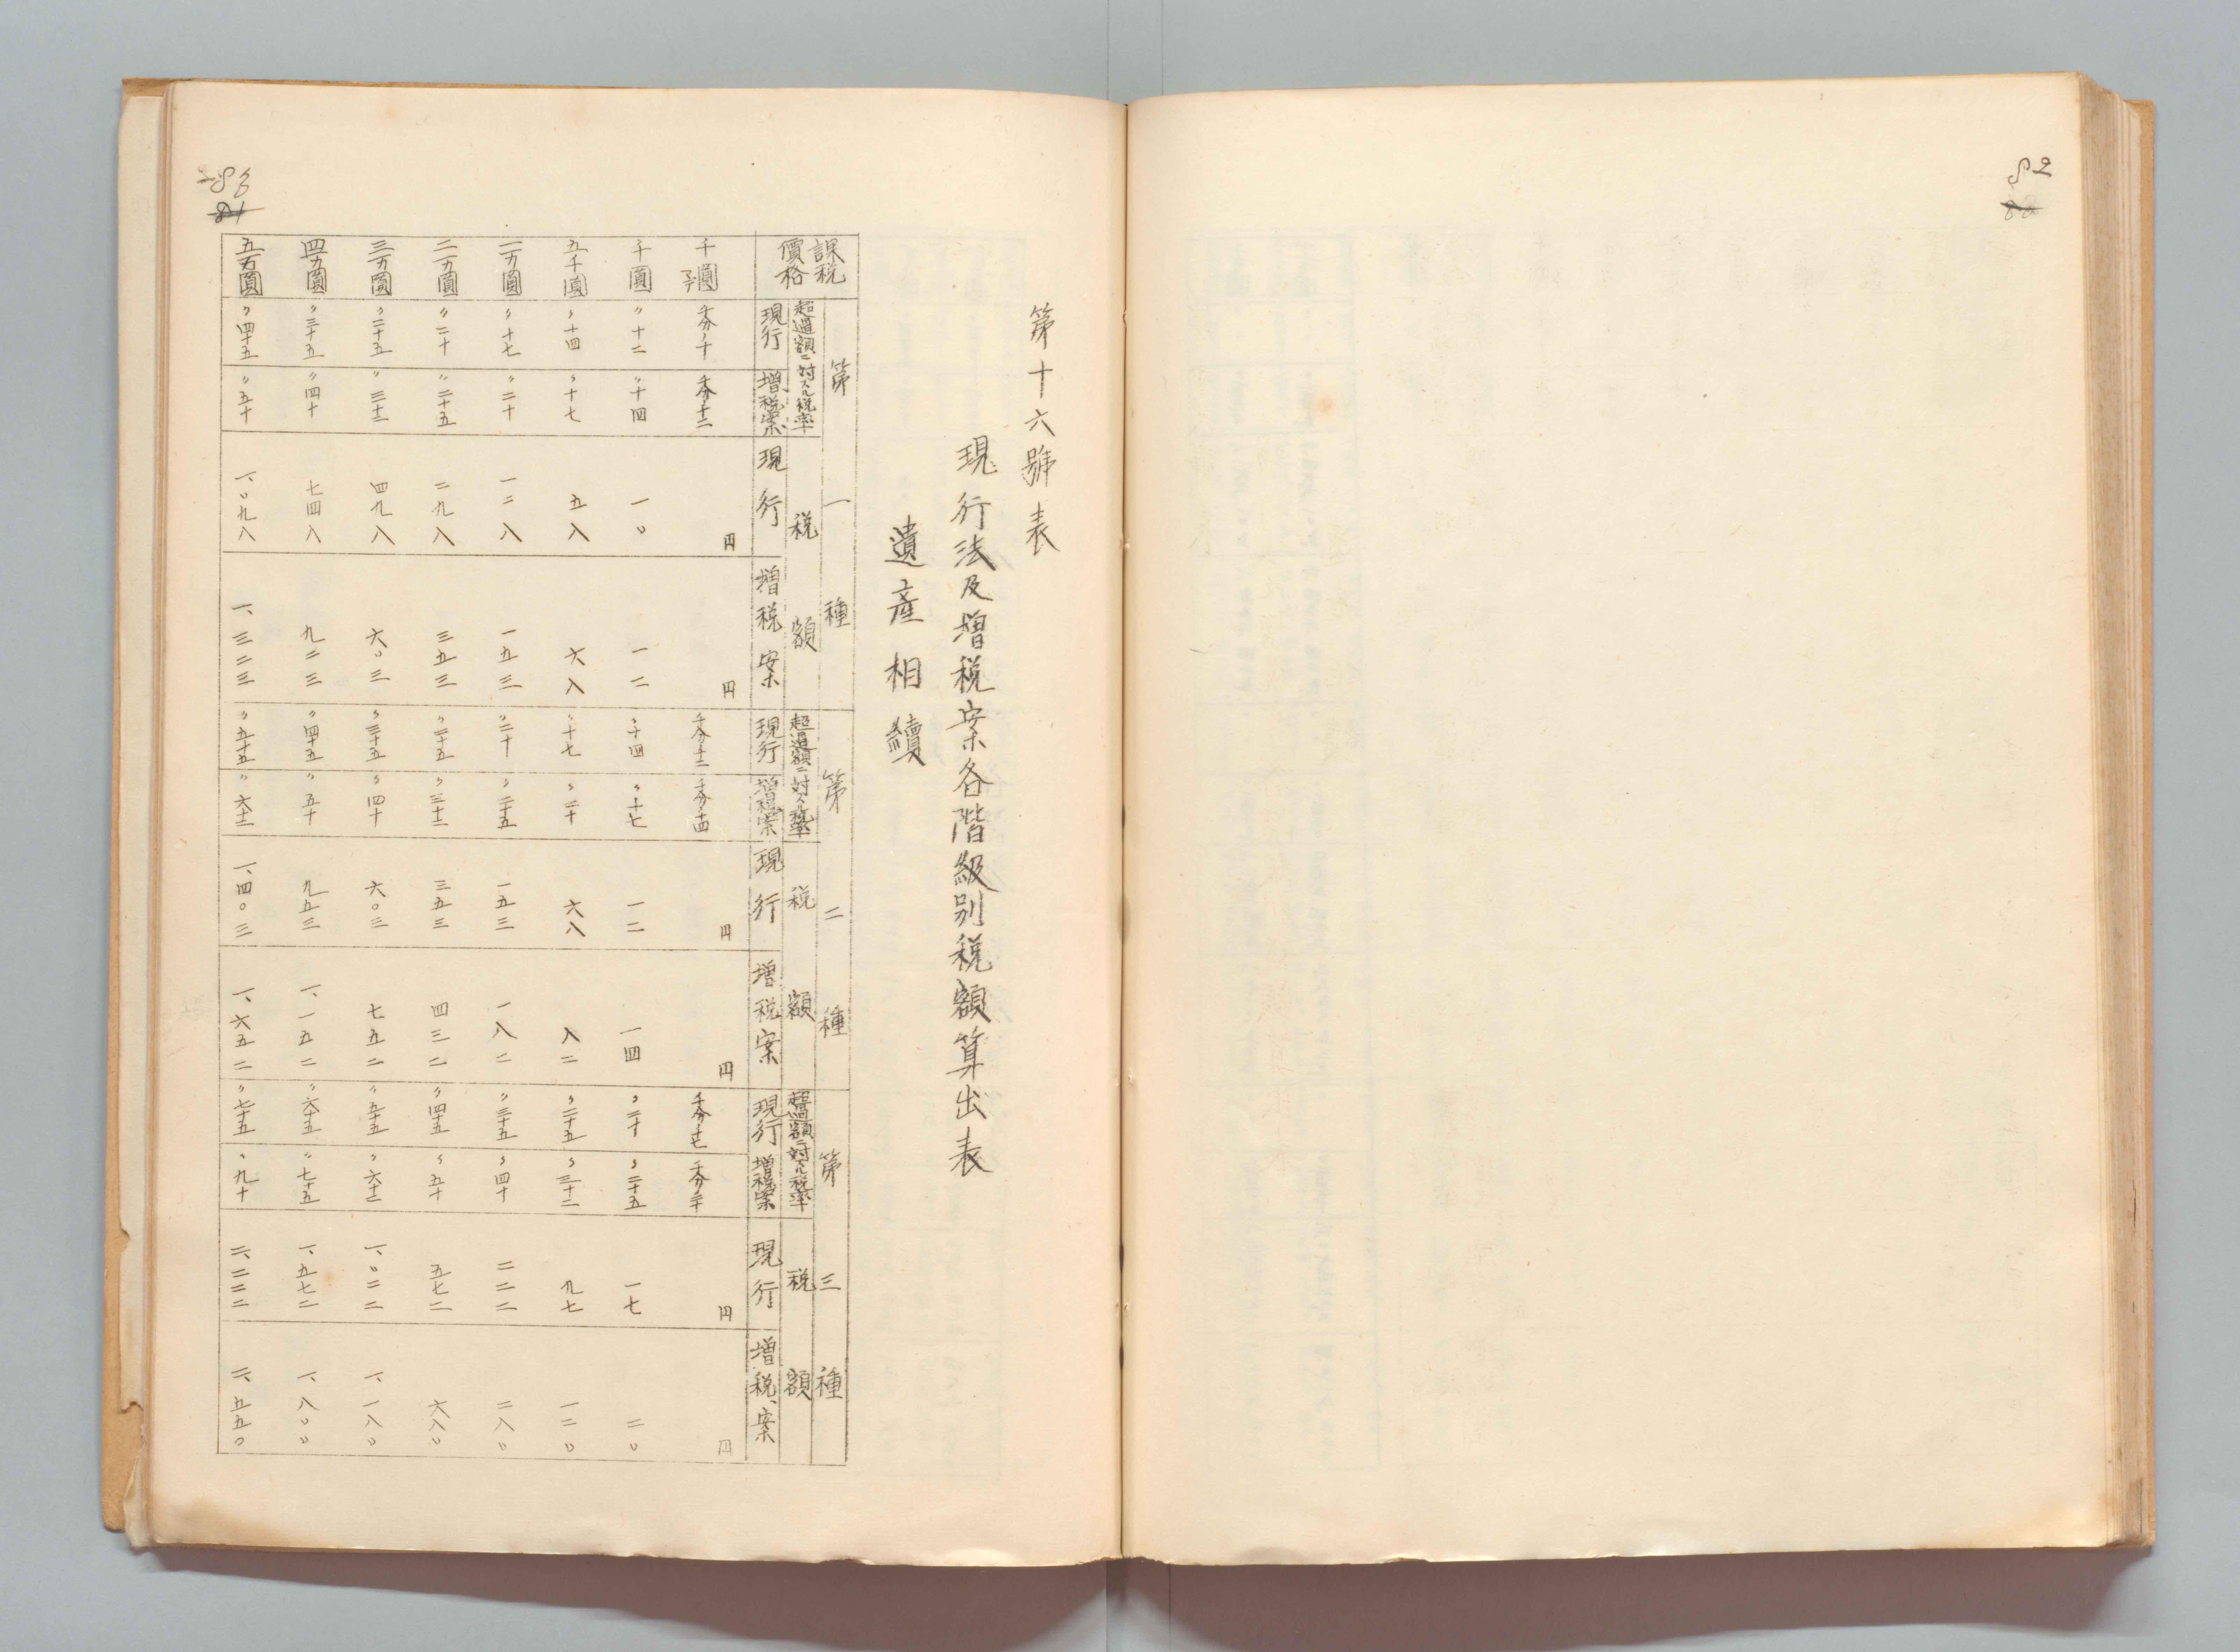 82
第十六號表
現行法及増税案各階級別税額算出表
遺産相續
83
81
課税價格 第一種 第二種 第三種
超過額ニ対スル税率 税額 超過額ニ対スル税率 税額 超過額ニ対スル税率 税額
現行 増税案 現行 増税案 現行 増税案 現行 増税案 現行 増税案 現行 増税案
千圓マデ 千分ノ十 千分ノ十二 円 円 千分ノ十二 千分ノ十四 円 円 千分ノ十七 千分ノ二十 円 円
千圓 〃十二 〃十四 一〇 一二 〃十四 〃十七 一二 一四 〃二十 〃二十五 一七 二〇
五千圓 〃十四 〃十七 五八 六八 〃十七 〃二十 六八 八二 〃二十五 〃三十二 九七 一二〇
一万圓 〃十七 〃二十 一二八 一五三 〃二十 〃二十五 一五三 一八二 〃三十五 〃四十 二二二 二八〇
二万圓 〃二十 〃二十五 二九八 三五三 〃二十五 〃三十二 三五三 四三二 〃四十五 〃五十 五七二 六八〇
三万圓 〃二十五 〃三十二 四九八 六〇三 〃三十五 〃四十 六〇三 七五二 〃五十五 〃六十二 一、〇二二 一、一八〇
四万圓 〃三十五 〃四十 七四八 九二三 〃四十五 〃五十 九五三 一、一五二 〃六十五 〃七十五 一、五七二 一、八〇〇
五万圓 〃四十五 〃五十 一、〇九八 一、三二三 〃五十五 〃六十二 一、四〇三 一、六五二 〃七十五 〃九十 二、二二二 二、五五〇